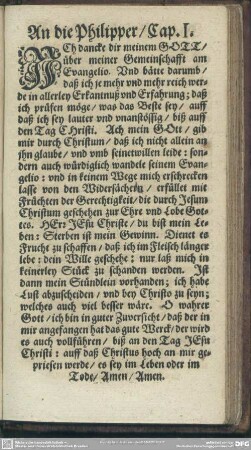 An die Philipper/ Cap. I.
ICh dancke dir meinem GOTT/
über meiner Gemeinschafft am
Evangelio. Vnd bätte darumb/
daß ich je mehr und mehr reich wer-
de in allerley Erkantnuß und Erfahrung; daß
ich präfen möge/ was das Beste sey/ auff
daß ich sey lauter und vnanstössig/ biß auff
den Tag CHristi. Ach mein GOtt/ gib
mir durch Christum/ daß ich nicht allein an
ihn glaube/ und vmb seinetwillen leide: son-
dern auch würdiglich wandele seinem Evan-
gelio: und in keinem Wege mich erschrecken
lasse von den Widersächern/ erfüllet mit
Früchten der Gerechtigkeit/ die durch JEsum
Christum geschehen zur Ehre und Lobe Got-
tes. HErr JEsu Christe/ du bist mein Le-
ben: Sterben ist mein Gewinn. Dienet es
Frucht zu schaffen/ daß ich im Fleisch länger
lebe: dein Wille geschehe: nur laß mich in
keinerley Stück zu schanden werden. Ist
dann mein Stündlein vorhanden; ich habe
Lust abzuscheiden/ und bey Christo zu seyn;
welches auch viel besser wäre. O wahrer
Gott/ ich bin in guter Zuversicht/ daß der in
mir angefangen hat das gute Werck/ der wird
es auch vollführen/ biß an den Tag JEsu
Christi: auff daß Christus hoch an mir ge-
priesen werde/ es sey im Leben oder im
Tode/ Amen/ Amen.
DFG